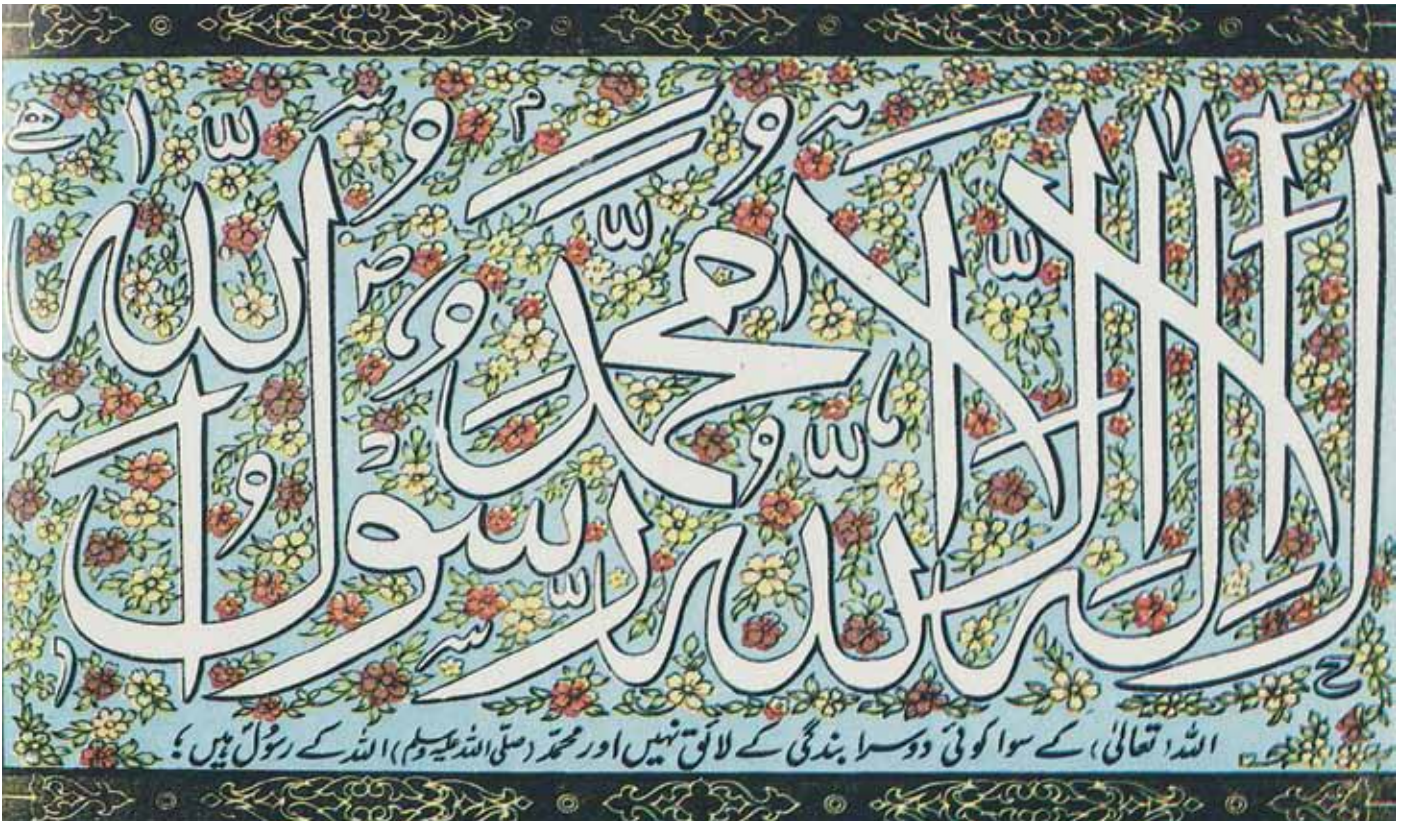 لا اله الا الله محمد رسول الله
الله (تعالیٰ) کے سوا کوئی دوسرا بندگی کے لائق نہیں اور محمدؐ (صلّی اللہ علیہ وسلم) اللہ کے رسول ہیں ؛